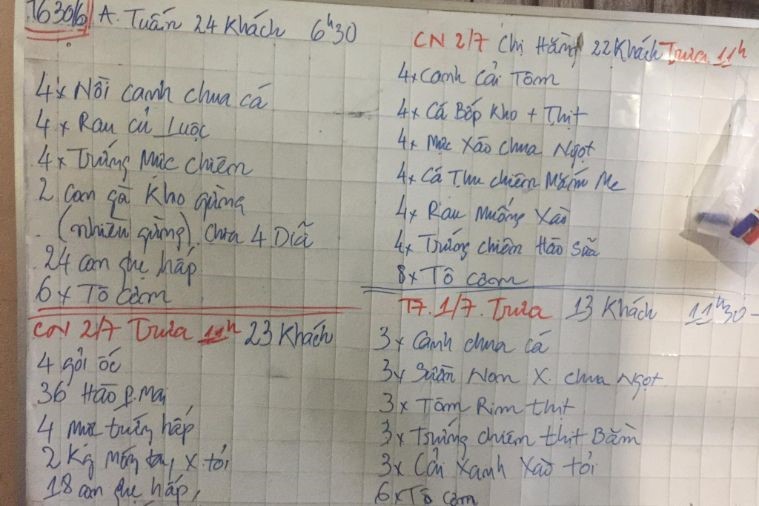 T6 30/6 A. Tuấn 24 Khách 6h30
4x Nồi canh chua cá
4x Rau củ Luộc
4x Trứng Mực chiên
2 con gà Kho gừng
(nhiều gừng). Chia 4 Dĩa
24 con ghẹ hấp
6x Tô Cơm
CN 2/7 Trưa 11h 23 Khách
4 gỏi ốc
36 Hào P. Mai
4 Mực trứng hấp
2 Kg Móng tay x tỏi
18 con ghẹ hấp,
CN 2/7 Chị Hằng 22 Khách Trưa 11h
4x Canh Cải Tôm
4x Cá Bớp Kho + Thịt
4x Mực Xào chua Ngọt
4x Cá Thu chiên Mắm Me
4x Rau Muống Xào
4x Trứng chiên Hào Sữa
8x Tô Cơm
T7. 1/7. Trưa 13 Khách 11h30
3x Canh chua cá
3x Sườn Non X. chua Ngọt
3x Tôm Rim thịt
3x Trứng chiên thịt Bằm
3x Cải Xanh Xào tỏi
6x Tô Cơm